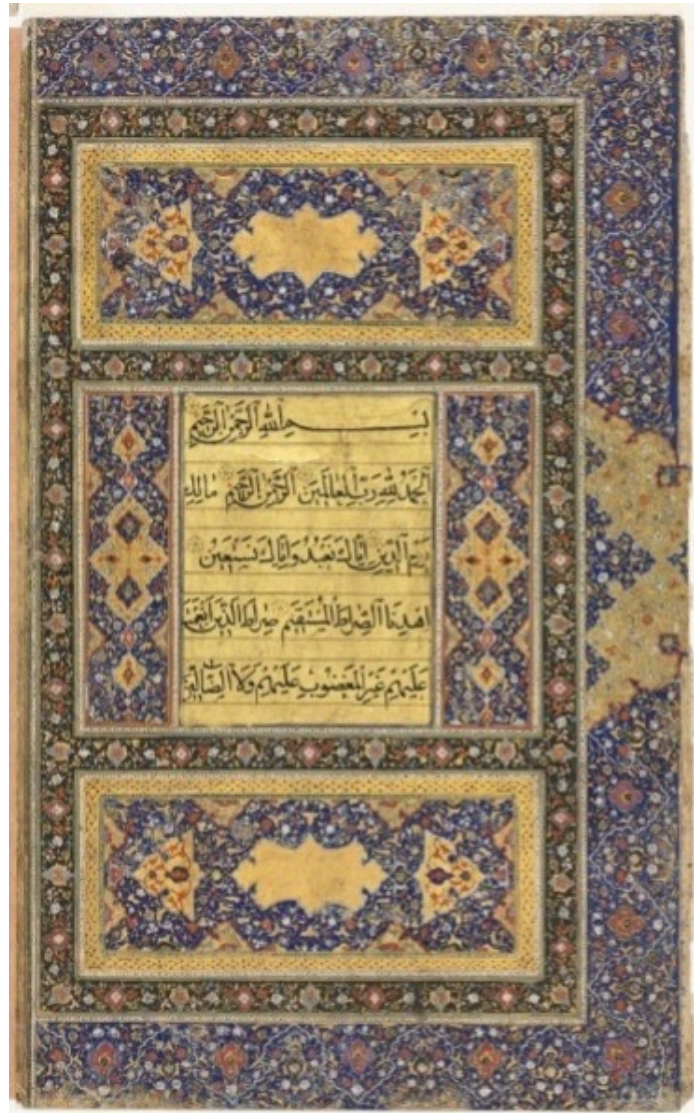 بِسْمِ اللَّهِ الرَّحْمَٰنِ الرَّحِيمِ
الْحَمْدُ لِلَّهِ رَبِّ الْعَالَمِينَ الرَّحْمَٰنِ الرَّحِيمِ مَالِكِ
يَوْمِ الدِّينِ إِيَّاكَ نَعْبُدُ وَإِيَّاكَ نَسْتَعِينُ
اهْدِنَا الصِّرَاطَ الْمُسْتَقِيمَ صِرَاطَ الَّذِينَ أَنْعَمْتَ
عَلَيْهِمْ غَيْرِ الْمَغْضُوبِ عَلَيْهِمْ وَلَا الضَّالِّينَ